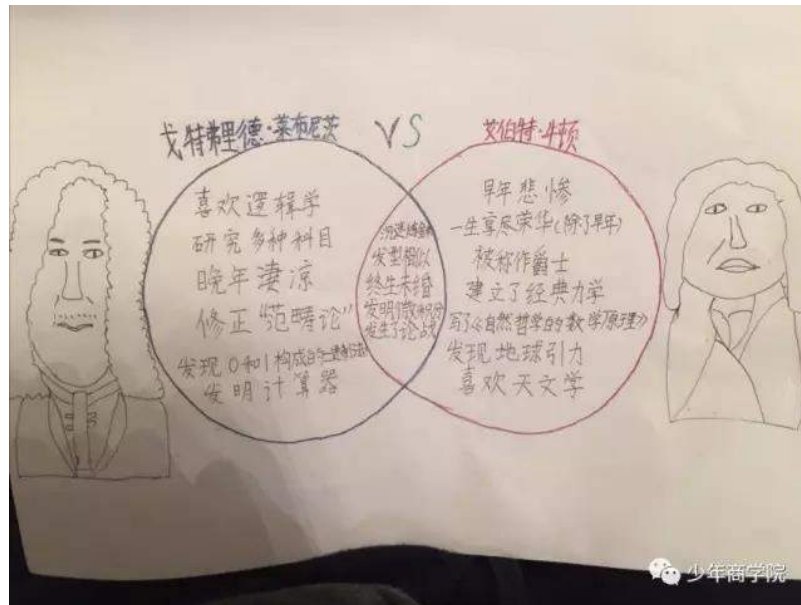 戈特弗里德·莱布尼茨 VS 艾伯特·牛顿
喜欢逻辑学
研究多种科目
晚年凄凉
修正“范畴论”
发现0和1构成的二进制
发明计算器
沉迷炼金术
发型相似
终生未婚
发明微积分
发生了论战
早年悲惨
一生享尽荣华(除了早年)
被称作爵士
建立了经典力学
写了《自然哲学的数学原理》
发现地球引力
喜欢天文学
少年商学院